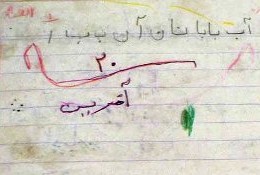 آب بابا نان آن بابا
۲۰
آفرین